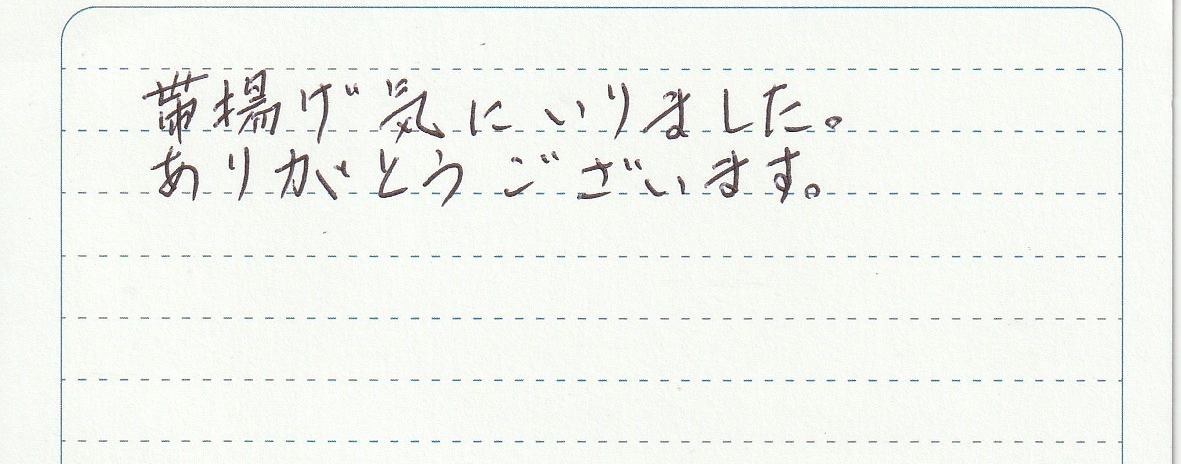 帯揚げ気にいりました。
ありがとうございます。